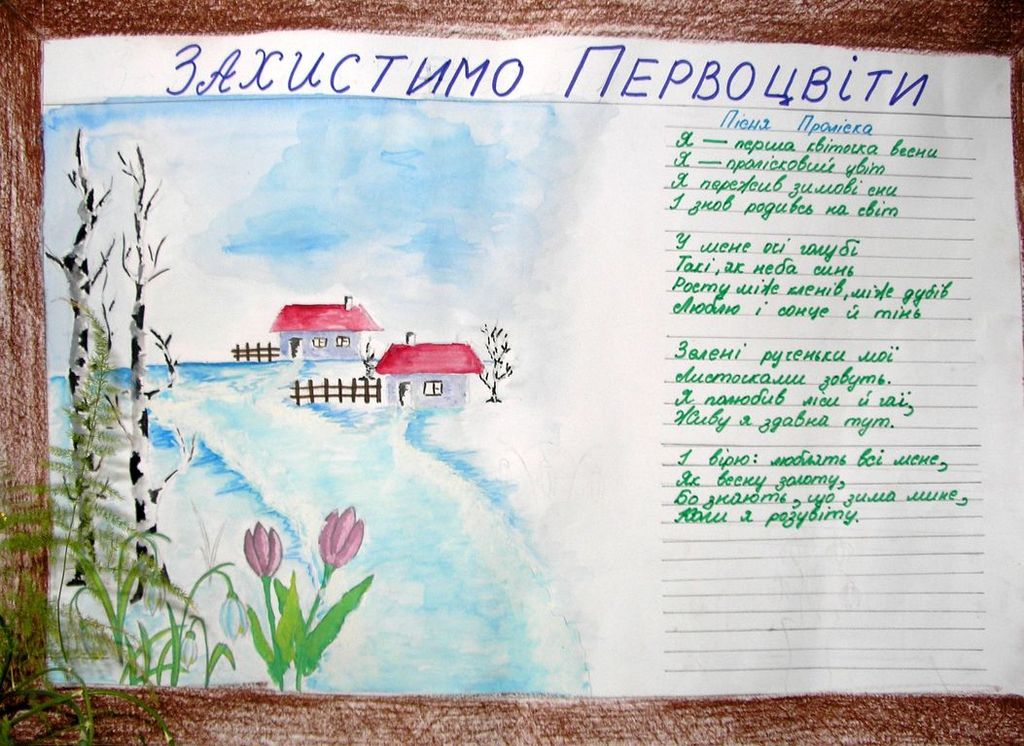 ЗАХИСТИМО ПЕРВОЦВІТИ
Пісня Проліска
Я — перша квіточка весни
Я — пролісковий цвіт
Я пережив зимові сни
І знов родивсь на світ
У мене очі голубі
Такі, як неба синь
Росту між кленів, між дубів
Люблю і сонце й тінь
Зелені рученьки мої
Листочками зовуть.
Я полюбив ліси й гаї,
Живу я здавна тут.
І вірю: люблять всі мене,
Як весну золоту,
Бо знають, що зима мине,
Коли я розцвіту.